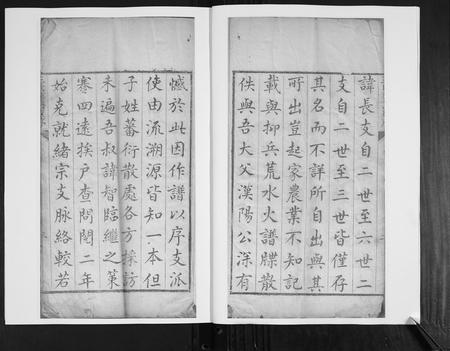 諱長支自二世至六世二
支自二世至三世皆僅存
其名而不詳所自出與其
所出豈起家農業不知記
載與抑兵荒水火譜牒散
佚與吾大父漢陽公深有
憾於此因作譜以序支派
使由流溯源皆知一本但
子姓蕃衍散處各方採訪
未遍吾叔諱智臨繼之策
蹇四遠挨戶查問閱二年
始克就緒宗支脉絡較若